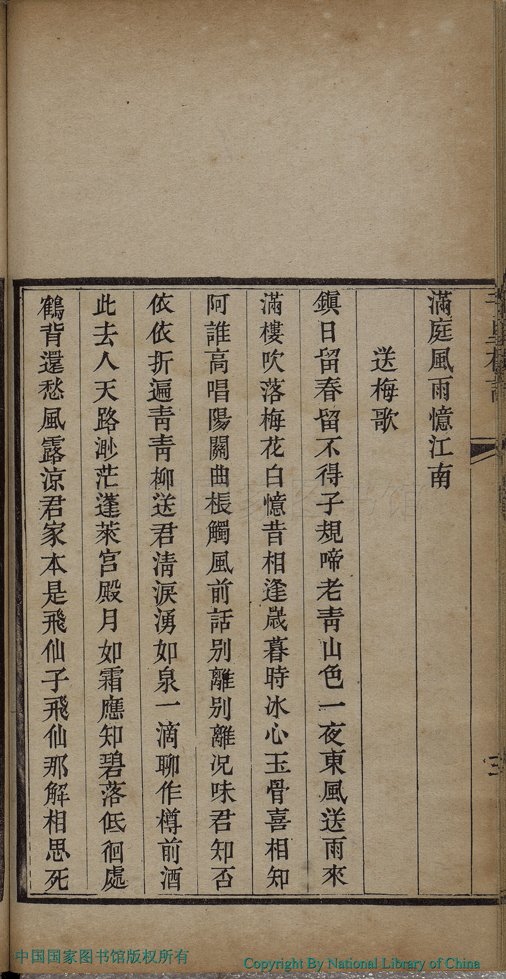 滿庭風雨憶江南
送梅歌
鎮日留春留不得子規啼老靑山色一夜東風送雨來
滿樓吹落梅花白憶昔相逢歲暮時冰心玉骨喜相知
阿誰高唱陽關曲棖觸風前話別離別離況味君知否
依依折遍靑靑柳送君淸淚湧如泉一滴聊作樽前酒
此去人天路渺茫蓬萊宮殿月如霜應知碧落低徊處
鶴背還愁風露涼君家本是飛仙子飛仙那解相思死
三
中国国家图书馆版权所有
Copyright By National Library of China